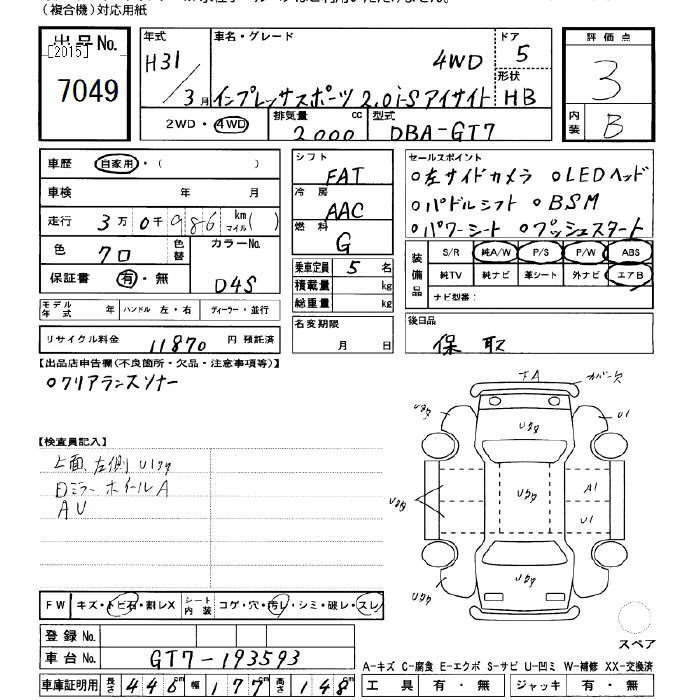 （複合機）対応用紙
出品No.
[2015]
7049
年式
H31/3月
車名・グレード
4WD
インプレッサスポーツ 2.0i-S アイサイト
ドア
5
形状
HB
評価点
3
内装
B
2WD・4WD
排気量
2000cc
型式
DBA-GT7
車歴
自家用・( )
車検 年 月
走行 3万0千986 km マイル( )
色 クロ
色替
カラーNo.
D4S
保証書 有・無
モデル年式 年
ハンドル 左・右
ディーラー・並行
リサイクル料金 11870 円 預託済
シフト
FAT
冷房
AAC
燃料
G
乗車定員 5 名
積載量 kg
総重量 kg
名変期限
月 日
セールスポイント
○左サイドカメラ ○LEDヘッド
○パドルシフト ○BSM
○パワーシート ○プッシュスタート
装備品
S/R 純A/W P/S P/W ABS
純TV 純ナビ 革シート 外ナビ エアB
ナビ型番：
後日品
保 取
【出品店申告欄(不良箇所・欠品・注意事項等)】
○クリアランスソナー
【検査員記入】
上面、左側 U1クク
Dミラー ホイールA
AU
下A
カバー欠
Uクク
U1
Uクク
Uクク
Uクク
A1
U1
Uクク
Uクク
FW キズ・トビ石・割レX
シート内装 コゲ・穴・汚レ・シミ・破レ・スレ
登録No.
車台No. GT7-193593
車庫証明用 長さ 446cm 幅 177cm 高さ 148cm
スペア
A-キズ C-腐食 E-エクボ S-サビ U-凹ミ W-補修 XX-交換済
工具 有・無 ジャッキ 有・無